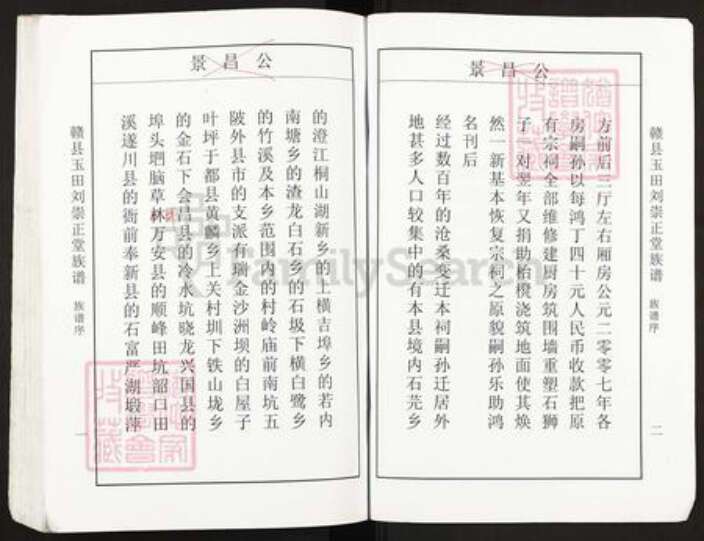 赣县玉田刘崇正堂族谱
族谱序
二
公昌景
方前后三厅左右厢房公元二零零七年各
房嗣孙以每鸿丁四十元人民币收款把原
有宗祠全部维修建厨房筑围墙重塑石狮
子一对翌年又捐助枱櫈浇筑地面使其焕
然一新基本恢复宗祠之原貌嗣孙乐助鸿
名刊后
经过数百年的沧桑变迁本祠嗣孙迁居外
地甚多人口较集中的有本县境内石芫乡
公昌景
的澄江桐山湖新乡的上横吉埠乡的若内
南塘乡的渣龙白石乡的石圾下横白鹭乡
的竹溪及本乡范围内的村岭庙前南坑五
陂外县市的支派有瑞金沙洲坝的白屋子
叶坪于都县黄麟乡上关村圳下铁山垅乡
的金石下会昌县的冷水坑晓龙兴国县的
埠头垇脑草林万安县的顺峰田坑韶口田
溪遂川县的衙前奉新县的石富严湖塅萍
赣县玉田刘崇正堂族谱
族谱序
一
FamilySearch